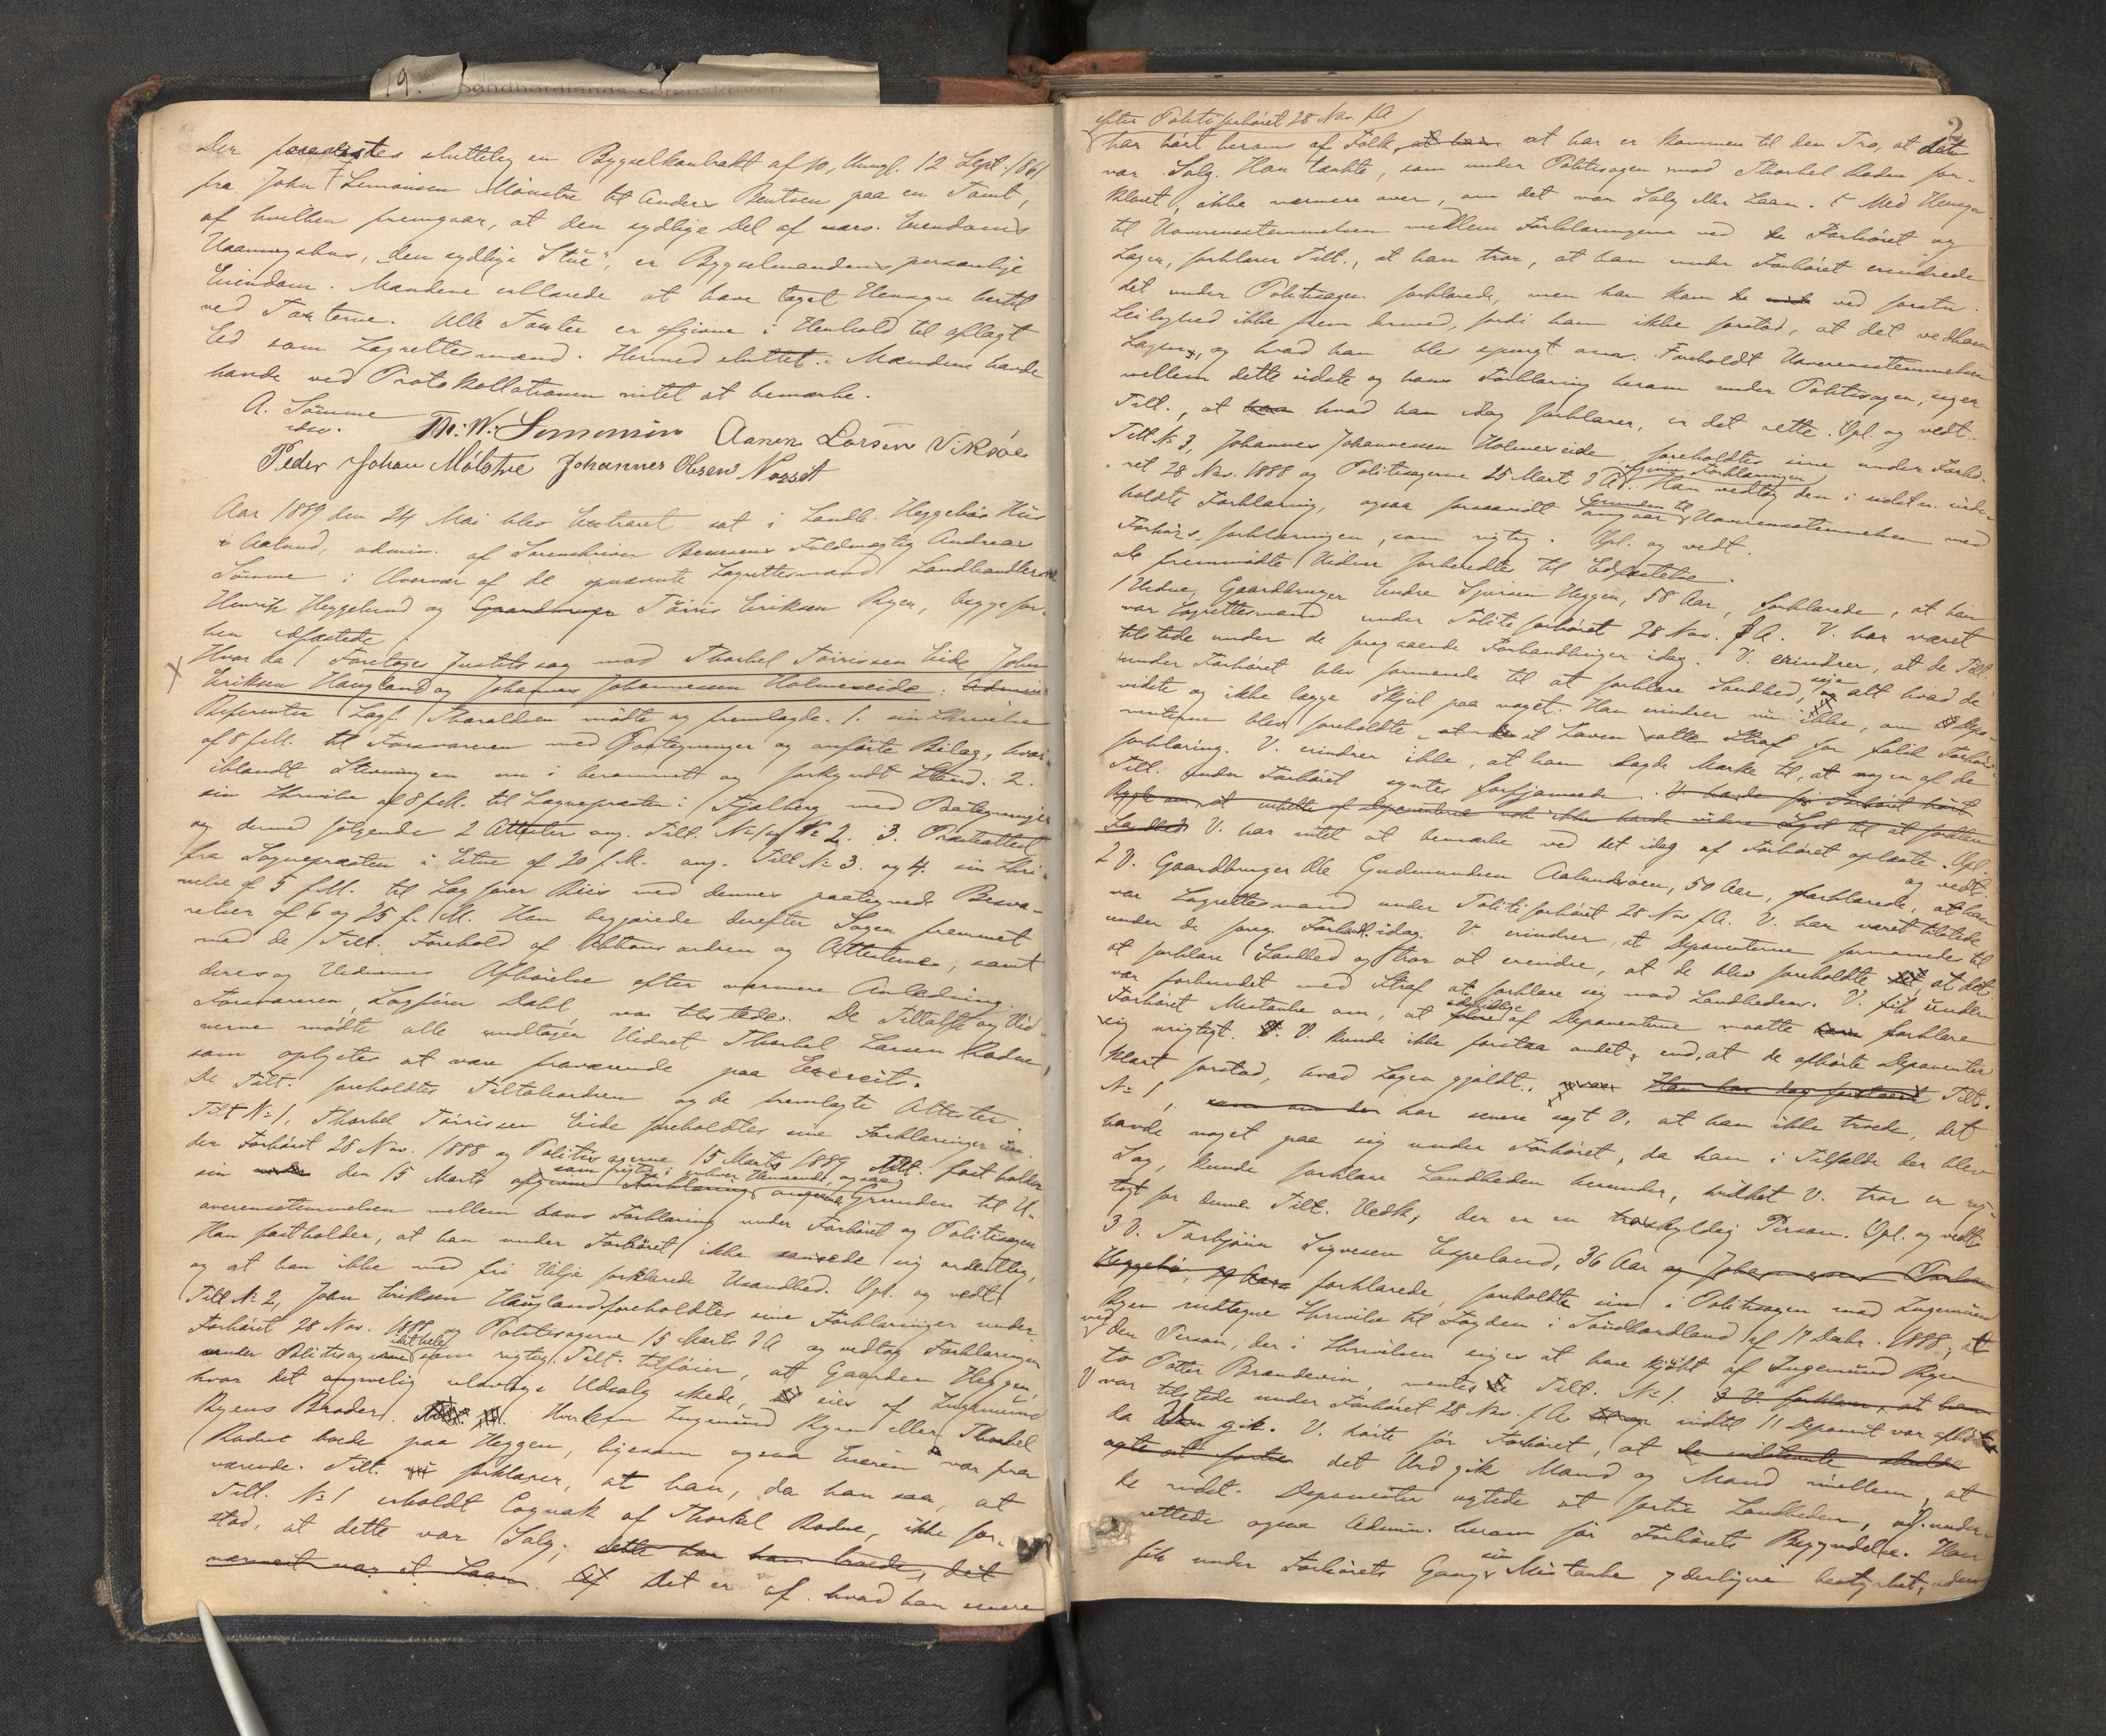 19. Søndhordlands sorenskriveri
Der foreviistes sluttelig en Bygselkontrakt af 10, thingl. 12 Sept. 1861
fra John Simonsen Mønstre til Anders Bentsen paa en Tomt,
af hvilken fremgaar, at den sydlige Del af nærv. Eiendoms
Vaaningshus, "den sydlige Stue", er Bygselmandens personlige
Eiendom. Mændene erklærede at have taget Hensyn hertil
ved Taxterne. Alle Taxter er afgivne i Henhold til aflagt
Ed som Lagrettesmænd. Hermed sluttet. Mændene havde
havde ved Protokollationen intet at bemærke.
A. Sømme
edsv. Th: W: Simonsen Aanen Larsen Viksøe
Peder Johan Mølstre Johannes Olsen
Aar 1889 den 24 Mai blev Extraret sat i Landh. Heggebøs Hus
i Aalund, admin. af Sorenskriver Fuldmægtig Andreas
Sømme i Overvær af de opnævnte Lagrettesmænd Landhandler
Henrik Heggelund og Gaardbruger Tørris Eriksen Ryen, begge for-
hen edfæstede.
Hvor da / Foretoges Justitssag mod Thorkel Tørrissen Eide, John
Eriksen Haugland og Johannes Johannessen Holmeseide.
Referenten Lagf. Tharaldsen mødte og fremlagde. 1. sin Skrivelse
af 8 f.M. til Forsvareren med Paategninger og anførte Bilag, hvor-
iblandt Stevningen nu i berammet og forkyndt Stand. 2.
sin Skrivelse af 8 f.M. til Sognepræsten i Fjelberg med Paategninger
og dermed følgende 2 Attester ang. Tilt. No 1 og No 2. 3. Præsteattest
fra Sognepræsten i Etne af 20 f.M. ang. Tilt No 3. og 4. sin Skri-
velse af 5 f.M. til Lagfører Riis med dennes paategnede Besva-
relser af 6 og 25 f. M. Han begjærede derefter Sagen fremmet
med de Tilt. Forehold af Aktionsordren og Attesterne, samt
deres og Vidnernes Afhørelse efter nærmere Anledning.
Forsvareren, Lagfører Dahl, var tilstede. De Tiltalte og Vid-
nerne mødte alle undtagen Vidnet Thorkel Larsen Rødne,
som oplystes at være fraværende paa Exercits.
De Tilt. foreholdtes Tiltaleordren og de fremlagte Attester.
Tilt No 1, Thorkel Tørrissen Eide foreholdtes sine Forklaringer un-
der Forhøret 28 Nov. 1888 og Politisagerne 15 Marts 1889. Tilt. fastholder
som rigtig i enhver Henseende, ogsaa
sin den 15 Marts afgivne Forklaring angaaende Grunden til U-
overensstemmelsen mellem hans Forklaring under Forhøret og Politisagen.
Han fastholder, at han under Forhøret ikke sansede sig ordentlig,
og at han ikke med fri Vilje forklarede Usandhed. Opl. og vedt.
Tilt No 2, John Eriksen Haugland foreholdtes sine Forklaringer under
Forhøret 28 Nov. 1888 og Politisagerne 15 Marts d A og vedtog Forklaringen
under Politisagerne som rigtig. Tilt. tilføier, at Gaarden Heggen,
hvor det angivelig ulovlige Udsalg skede, eies af Ingemund
Ryens Broder. Hverken Ingemund Ryen eller Thorkel
Rødne boede paa Heggen, ligesom ogsaa Eieren var fra-
værende. Tilt. forklarer, at han, da han saa, at
Tilt. No 1 erholdt Cognak af Thorkel Rødne, ikke for-
stod, at dette var Salg; dette har han troede, det
nærmest var et Laan. Det er af hvad han senere
2
efter Politiforhøret 28 Nov. f A
har hørt herom af Folk, at han at har er kommen til den Tro, at dette
var Salg. Han tænkte, som under Politisagen mod Thorkel Rødne for-
klaret, ikke nærmere over, om det var Salg eller Laan. Med Hensyn
til Uoverensstemmelsen mellem Forklaringerne ved Forhøret og
Sagen, forklarer Tilt., at han tror, at han under Forhøret erindrede
det under Politisagen forklarede, men han kom ved første
Leilighed ikke frem dermed, fordi han ikke forstod, at det vedkom
Sagen, og hvad han blev spurgt om. Foreholdt Uoverensstemmelsen
mellem dette sidste og hans Forklaring herom under Politisagen, siger
Tilt., at hvad han idag forklarer, er det rette. Opl. og vedt.
Tilt. No 3, Johannes Johannessen Holmeseide foreholdtes sine under Forhø-
afgivne Forklaringer
ret 28 Nov. 1888 og Politisagerne 25 Marts d A. Han vedtog den i sidstn. inde-
Grunden til
holdte Forklaring, ogsaa forsaavidt angaar Uoverensstemmelsen med
Forhørsforklaringen, som rigtig. Opl. og vedt.
De fremmødte Vidner forberedtes til Edfæstelse.
1 Vidne, Gaardbruger Endre Heggen, 58 Aar, forklarede, at han
var Lagrettesmand under Politiforhøret 28 Nov. f A. V. har været
tilstede under de foregaaende Forhandlinger idag. V. erindrer, at de Tilt.
sige
under Forhøret blev formanede til at forklare Sandhed, alt hvad de
vidste og ikke lægge Skjul paa noget. Han erindrer nu ikke, om Depo-
nenterne blev foreholdte at Loven satte Straf for falsk Forhørs-
forklaring. V. erindrer ikke, at han lagde Mærke til, at nogen af de
Tilt. under Forhøret syntes forfjamsede. V. havde før Forhøret hørt
Rygte om, at enkelte af Deponenterne nok ikke havde videre Lyst til at fortælle
Sandhed. V. har intet at bemærke ved det idag af Forhøret oplæste. Opl.
og vedt.
2 V. Gaardbruger Ole Gudmundsen Aalundsøen, 50 Aar, forklarede, at han
var Lagrettesmand under Politiforhøret 28 Nov f A. V. har været tilstede
under de foreg. Forhandl. idag. V. erindrer, at Deponenterne formanede til
at forklare Sandhed og tror at erindre, at de blev foreholdte at det
var forbundet med Straf at forklare sig mod Sandheden. V. fik under
adskillige
Forhøret Mistanke om, at flere af Deponenterne maatte forklare
sig urigtigt. V. kunde ikke forstaa andet, end, at de afhørte Deponenter
klart forstod, hvad Sagen gjaldt. Han har dog forstaaet Tilt.
No 1, har senere sagt V, at han ikke troede, det
havde noget paa sig under Forhøret, da han i Tilfælde der blev
Sag, kunde forklare Sandheden herunder, hvilket V. tror er rig-
tigt for denne Tilt. Vedk, der er en troskyldig Person. Opl. og vedt.
3 V. Torbjørn Sigvesen Espeland, 36 Aar
Heggebø, forklarede, foreholdtes sin i Politisagen mod Ingemund
Ryen indtagne Skrivelse til Fogden i Søndhordland af 17 Decbr. 1888, at
ved den Person, der i Skrivelsen siges at have kjøbt af Ingemund Ryen
to Potter Brændevin, mentes Tilt. No 1. 3 V. forklarer, at han
V var tilstede under Forhøret 28 Nov. f A indtil 11 Deponent var afhørt
da gik. V. hørte før Forhøret, at de indstevnte skulde
agte at fortie det Ord gik Mand og Mand imellem, at
de indst. Deponenter agtede at fortie Sandheden, og under-
rettede ogsaa Admin. herom før Forhørets Begyndelse. Han
sin
fik under Forhørets Gang Mistanke yderligere bestyrket, uden